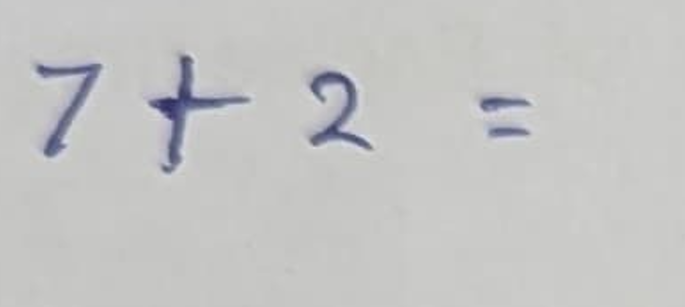 7 + 2 =